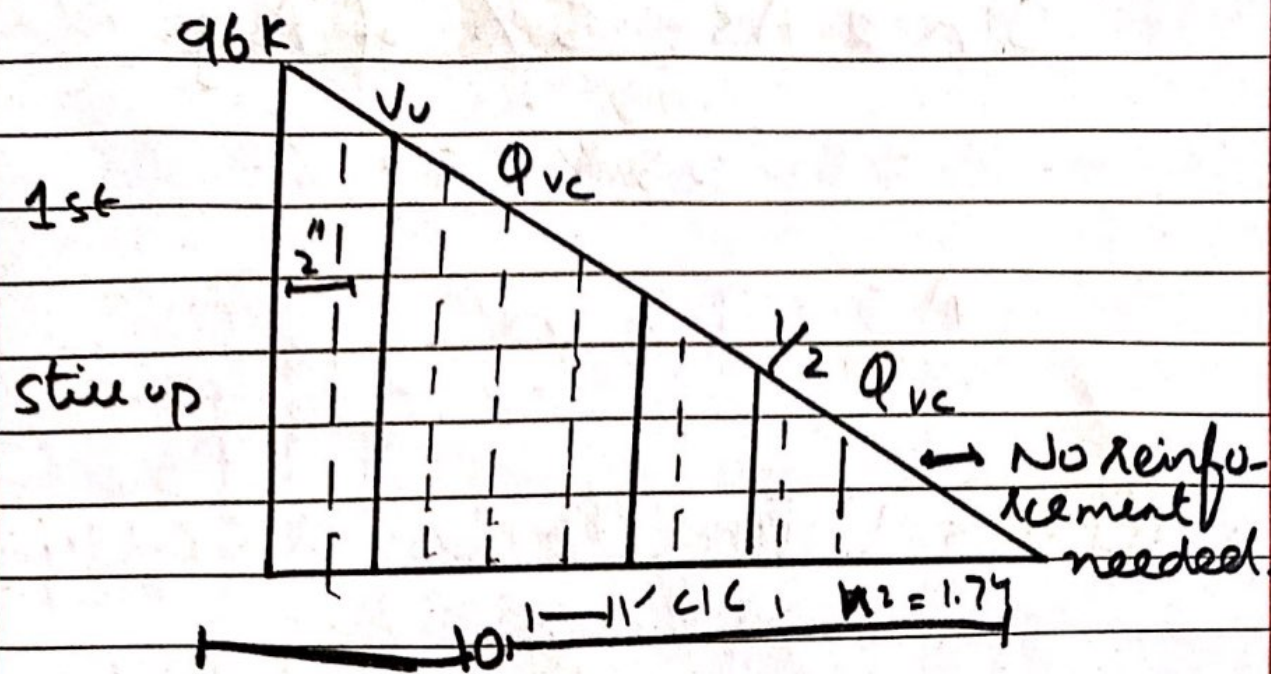 96K
Vu
φvc
1st
2"
1/2 φvc
stirrup
↔ No reinfo-
rcement
needed.
11" C/C
x2 = 1.74
10